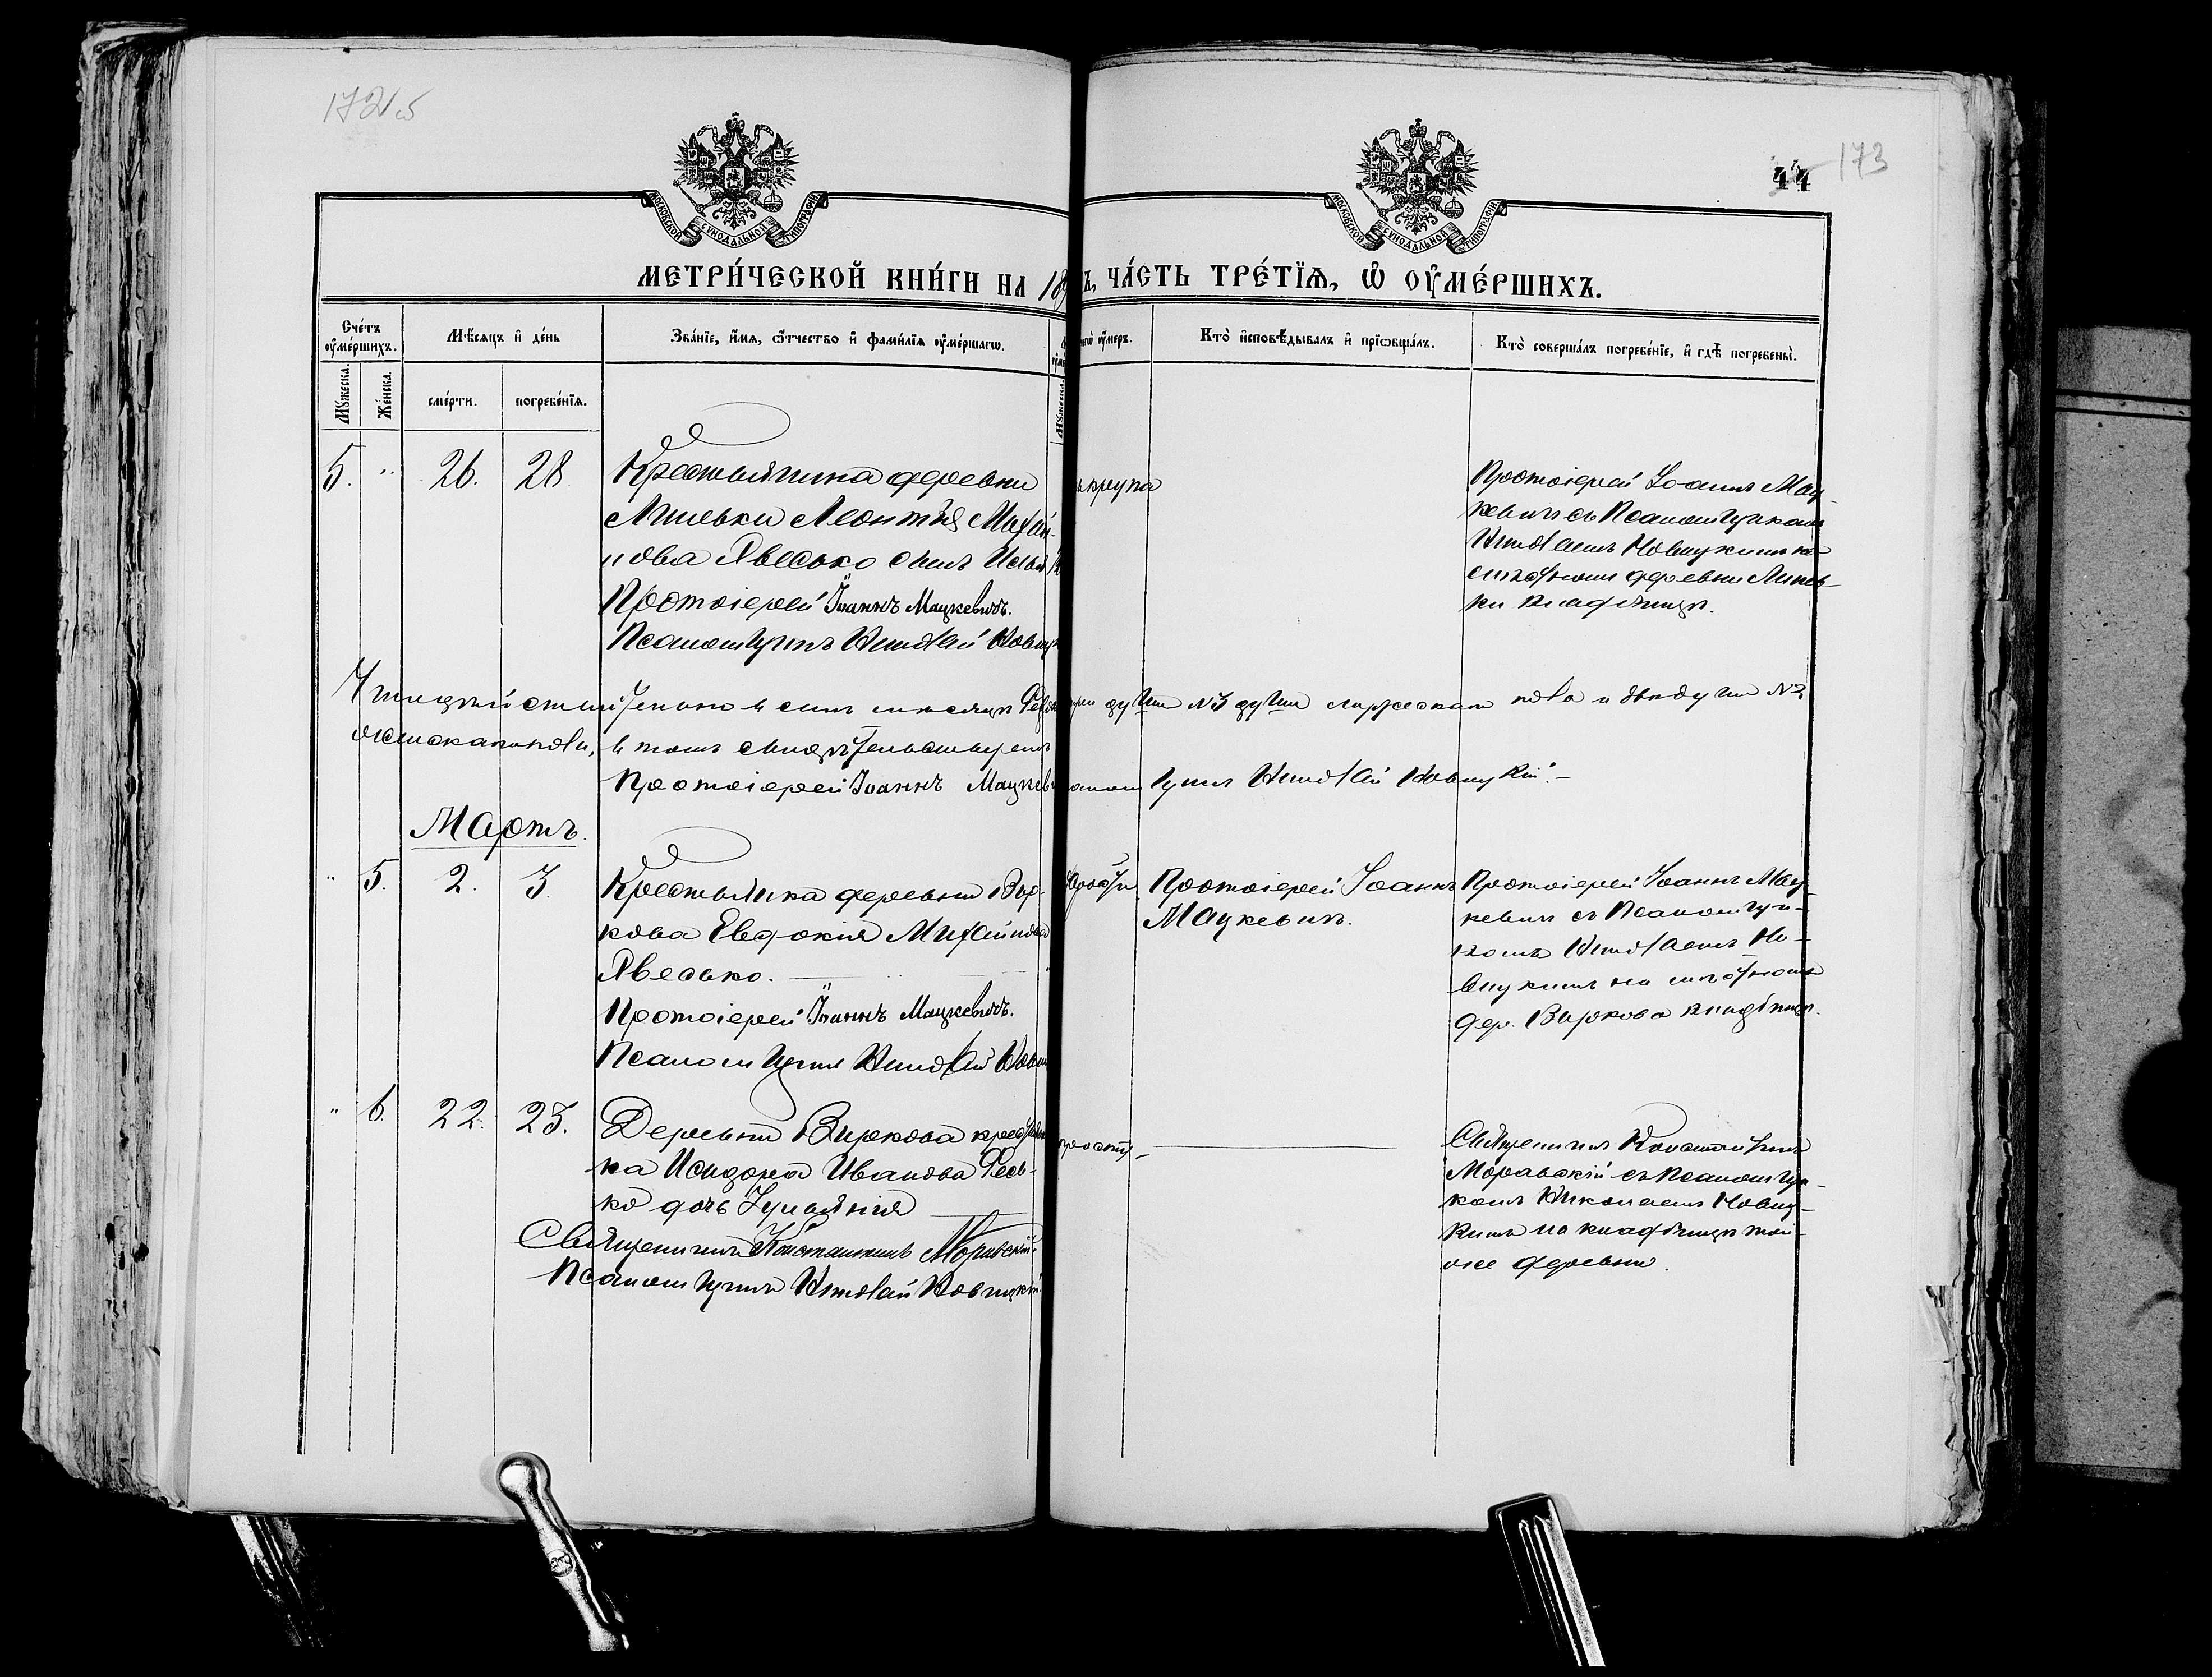 172об
44 173
МОСКОВСКОЙ СѴНОДАЛЬНОЙ ТИПОГРАФІИ
МОСКОВСКОЙ СѴНОДАЛЬНОЙ ТИПОГРАФІИ
МЕТРИ́ЧЕСКОЙ КНИ́ГИ НА 189
Ъ, ЧА́СТЬ ТРЕ́ТЇѦ, Ѡ҆ ОУ҆МЕ́РШИХЪ.
Сче́тъ оу҆ме́ршихъ.
Мꙋ́жеска.
Же́нска.
Мѣ́сяцъ и҆ де́нь
сме́рти.
погребе́нїѧ.
Зва́нїе, и҆́мѧ, ѻ҆́тчество и҆ фами́лїѧ оу҆ме́ршагѡ.
Мꙋ́жеска.
оу҆́меръ.
Кто̀ и҆сповѣ́дывалъ и҆ прїѡбща́лъ.
Кто̀ соверша́лъ погребе́нїе, и҆ гдѣ̀ погребены̀.
5. " 26. 28.
Крестьянина деревни
Линевки Леонтія Михай-
лова Явсько сынъ
Протоіерей Іоаннъ Мацкевичъ.
Псаломщикъ Николай Новиц
крупа
Протоіерей Іоаннъ Мац-
кевичъ съ Псаломщикомъ
Николаемъ Новицкимъ на
мѣстномъ деревни Линев-
ки кладбищѣ.
въ семъ мѣсяцѣ
души №3 души мужескаго пола и двѣ души №2
женскаго пола, въ томъ свидѣтельствуемъ
Протоіерей Іоаннъ Мацкев
щикъ Николай Новицкій.–
Мартъ.
" 5. 2. 3.
Крестьянка деревни Вир-
кова Евдокія Михайлова
Явсько.
Протоіерей Іоаннъ Мацкевичъ.
Псаломщикъ Николай Нови
Протоіерей Іоаннъ
Мацкевичъ.
Протоіерей Іоаннъ Мац-
кевичъ съ Псаломщи-
комъ Николаемъ Но-
вицкимъ на мѣстномъ
дер. Виркова кладбищѣ.
" 6. 22. 23.
Деревни Виркова крестьяни
на Исидора Иванова Фесь-
ко дочь Іуліанія
Священникъ Константинъ Моравскій.
Псаломщикъ Николай Новицкій.
Священникъ Константинъ
Моравскій съ Псаломщи-
комъ Николаемъ Новиц-
кимъ на кладбищѣ той-
же деревни.